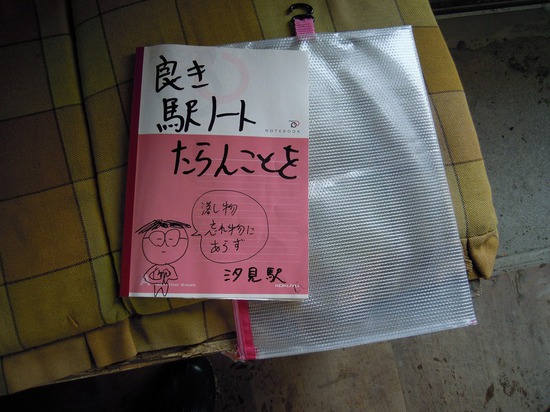 良き
駅ノート
NOTEBOOK
たらんことを
落し物
忘れ物に
あらず
汐見駅
KOKUYO